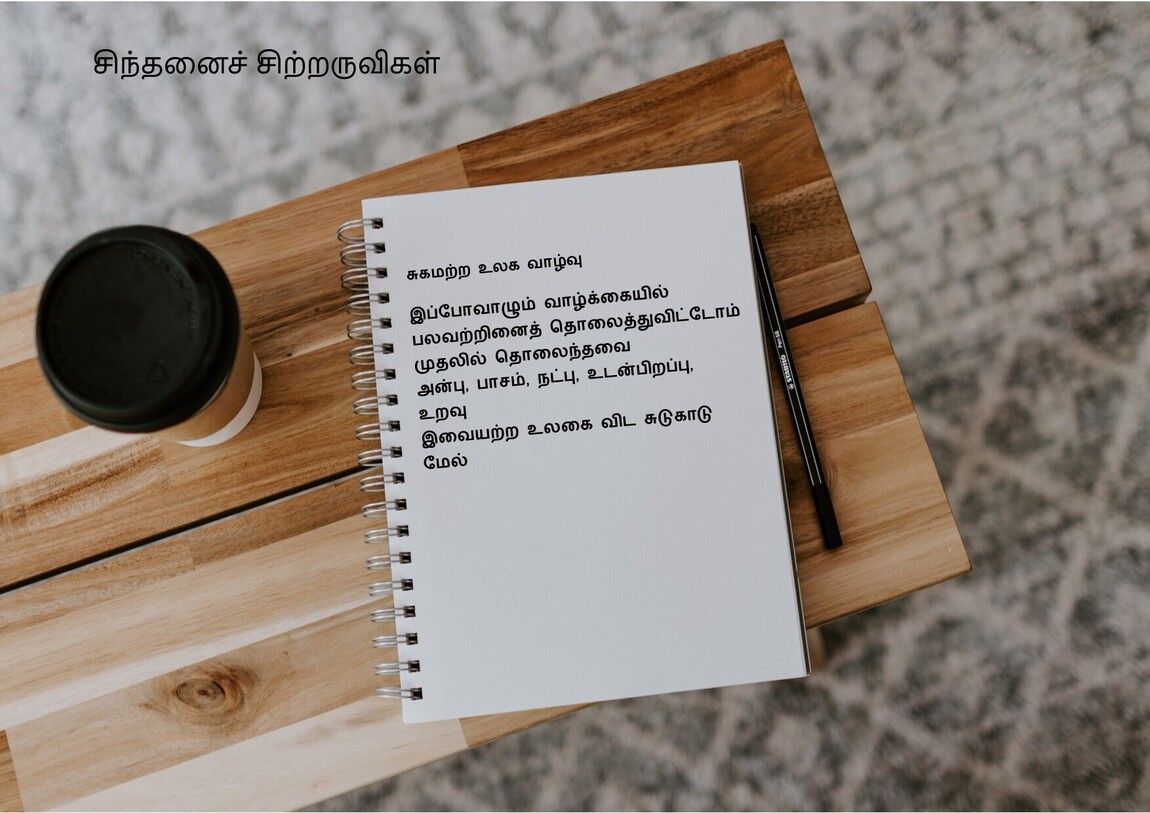 சிந்தனைச் சிற்றருவிகள்
சுகமற்ற உலக வாழ்வு
இப்போவாழும் வாழ்க்கையில்
பலவற்றினைத் தொலைத்துவிட்டோம்
முதலில் தொலைந்தவை
அன்பு, பாசம், நட்பு, உடன்பிறப்பு,
உறவு
இவையற்ற உலகை விட சுடுகாடு
மேல்
STABILO